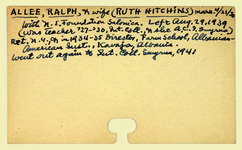 ALLEE, RALPH, & wife (RUTH HITCHINS)
With N.E. Foundation Salonica. Left Aug. 29, 1939
(Was teacher '27-'30, Int. Coll., Smyrna)
Ret. N.Y. in 1934-35 Director, Farm School, Albanian-
American Inst., Kavaja, Albania.
Went out again to Int. Coll. Smyrna, 1941